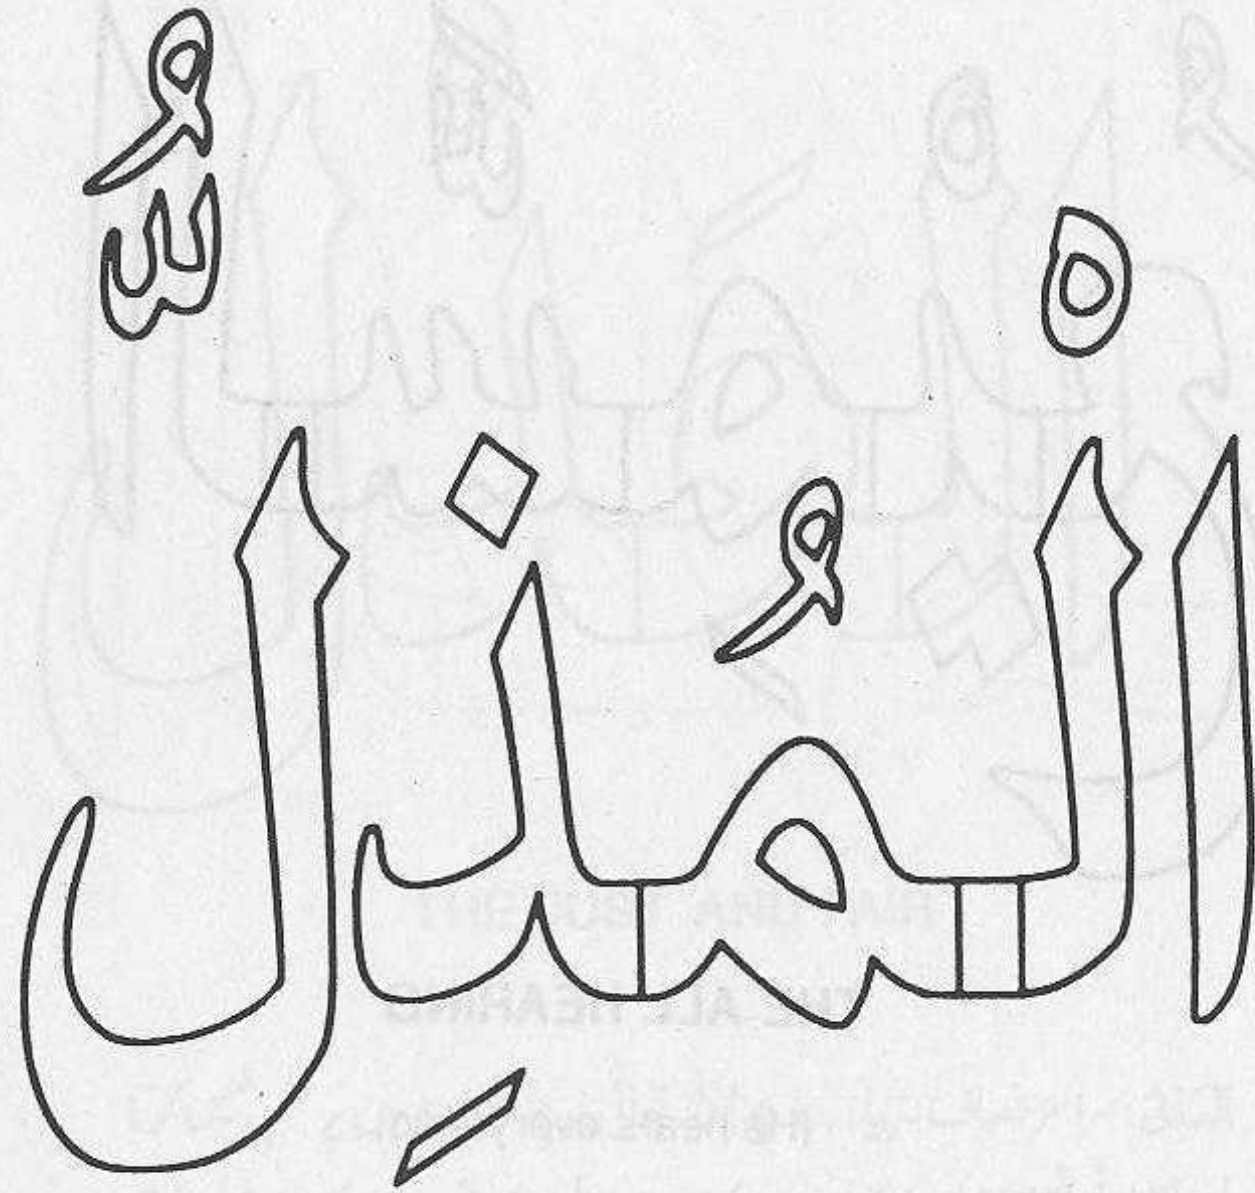 الْمُذِلُّ